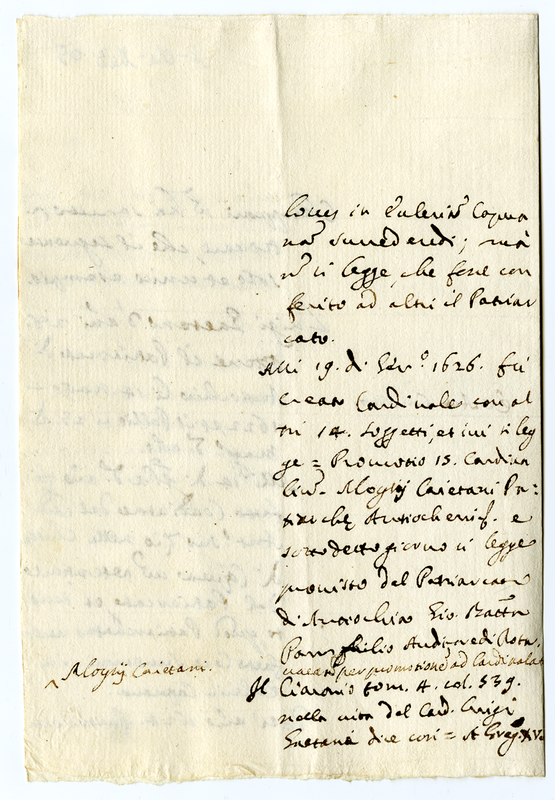 loues in Ecclesia Capua
na succedendi; ma
non si legge, che fosse con
ferito ad altri il Patriar
cato.
Alli 19. di Gen.o 1626. fù
creato Cardinale con al
tri 12. soggetti, et ivi si leg
ge = Promotio 13. Cardina
lium. Aloysij Caietani Pa=
triarche Antiocheni. e
sotto detto giorno si legge
provisto del Patriarcato
di Antiochia Gio. Batta
Pamphilio Auditore di Rota.
vacante per promotione ad Cardinalat
Aloysij Caietani.
Il Ciaconio tom. 4. col. 539.
nella vita del Card. Luigi
Gaetani dice così = A Greg. XV.